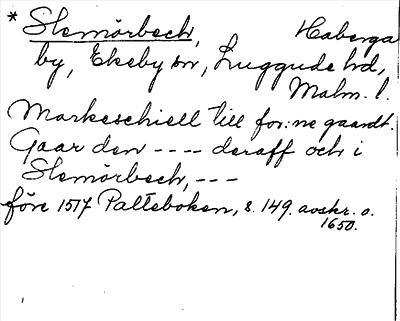 * Slemörbeck, Haberga
by, Ekeby sn, Luggude hd,
Malm. l.
Markeschiell till for:ne gaardt.
Gaar den ---- deraff och i
Slemörbech, ---
före 1517 Palteboken, s. 149. avskr. o.
1650.